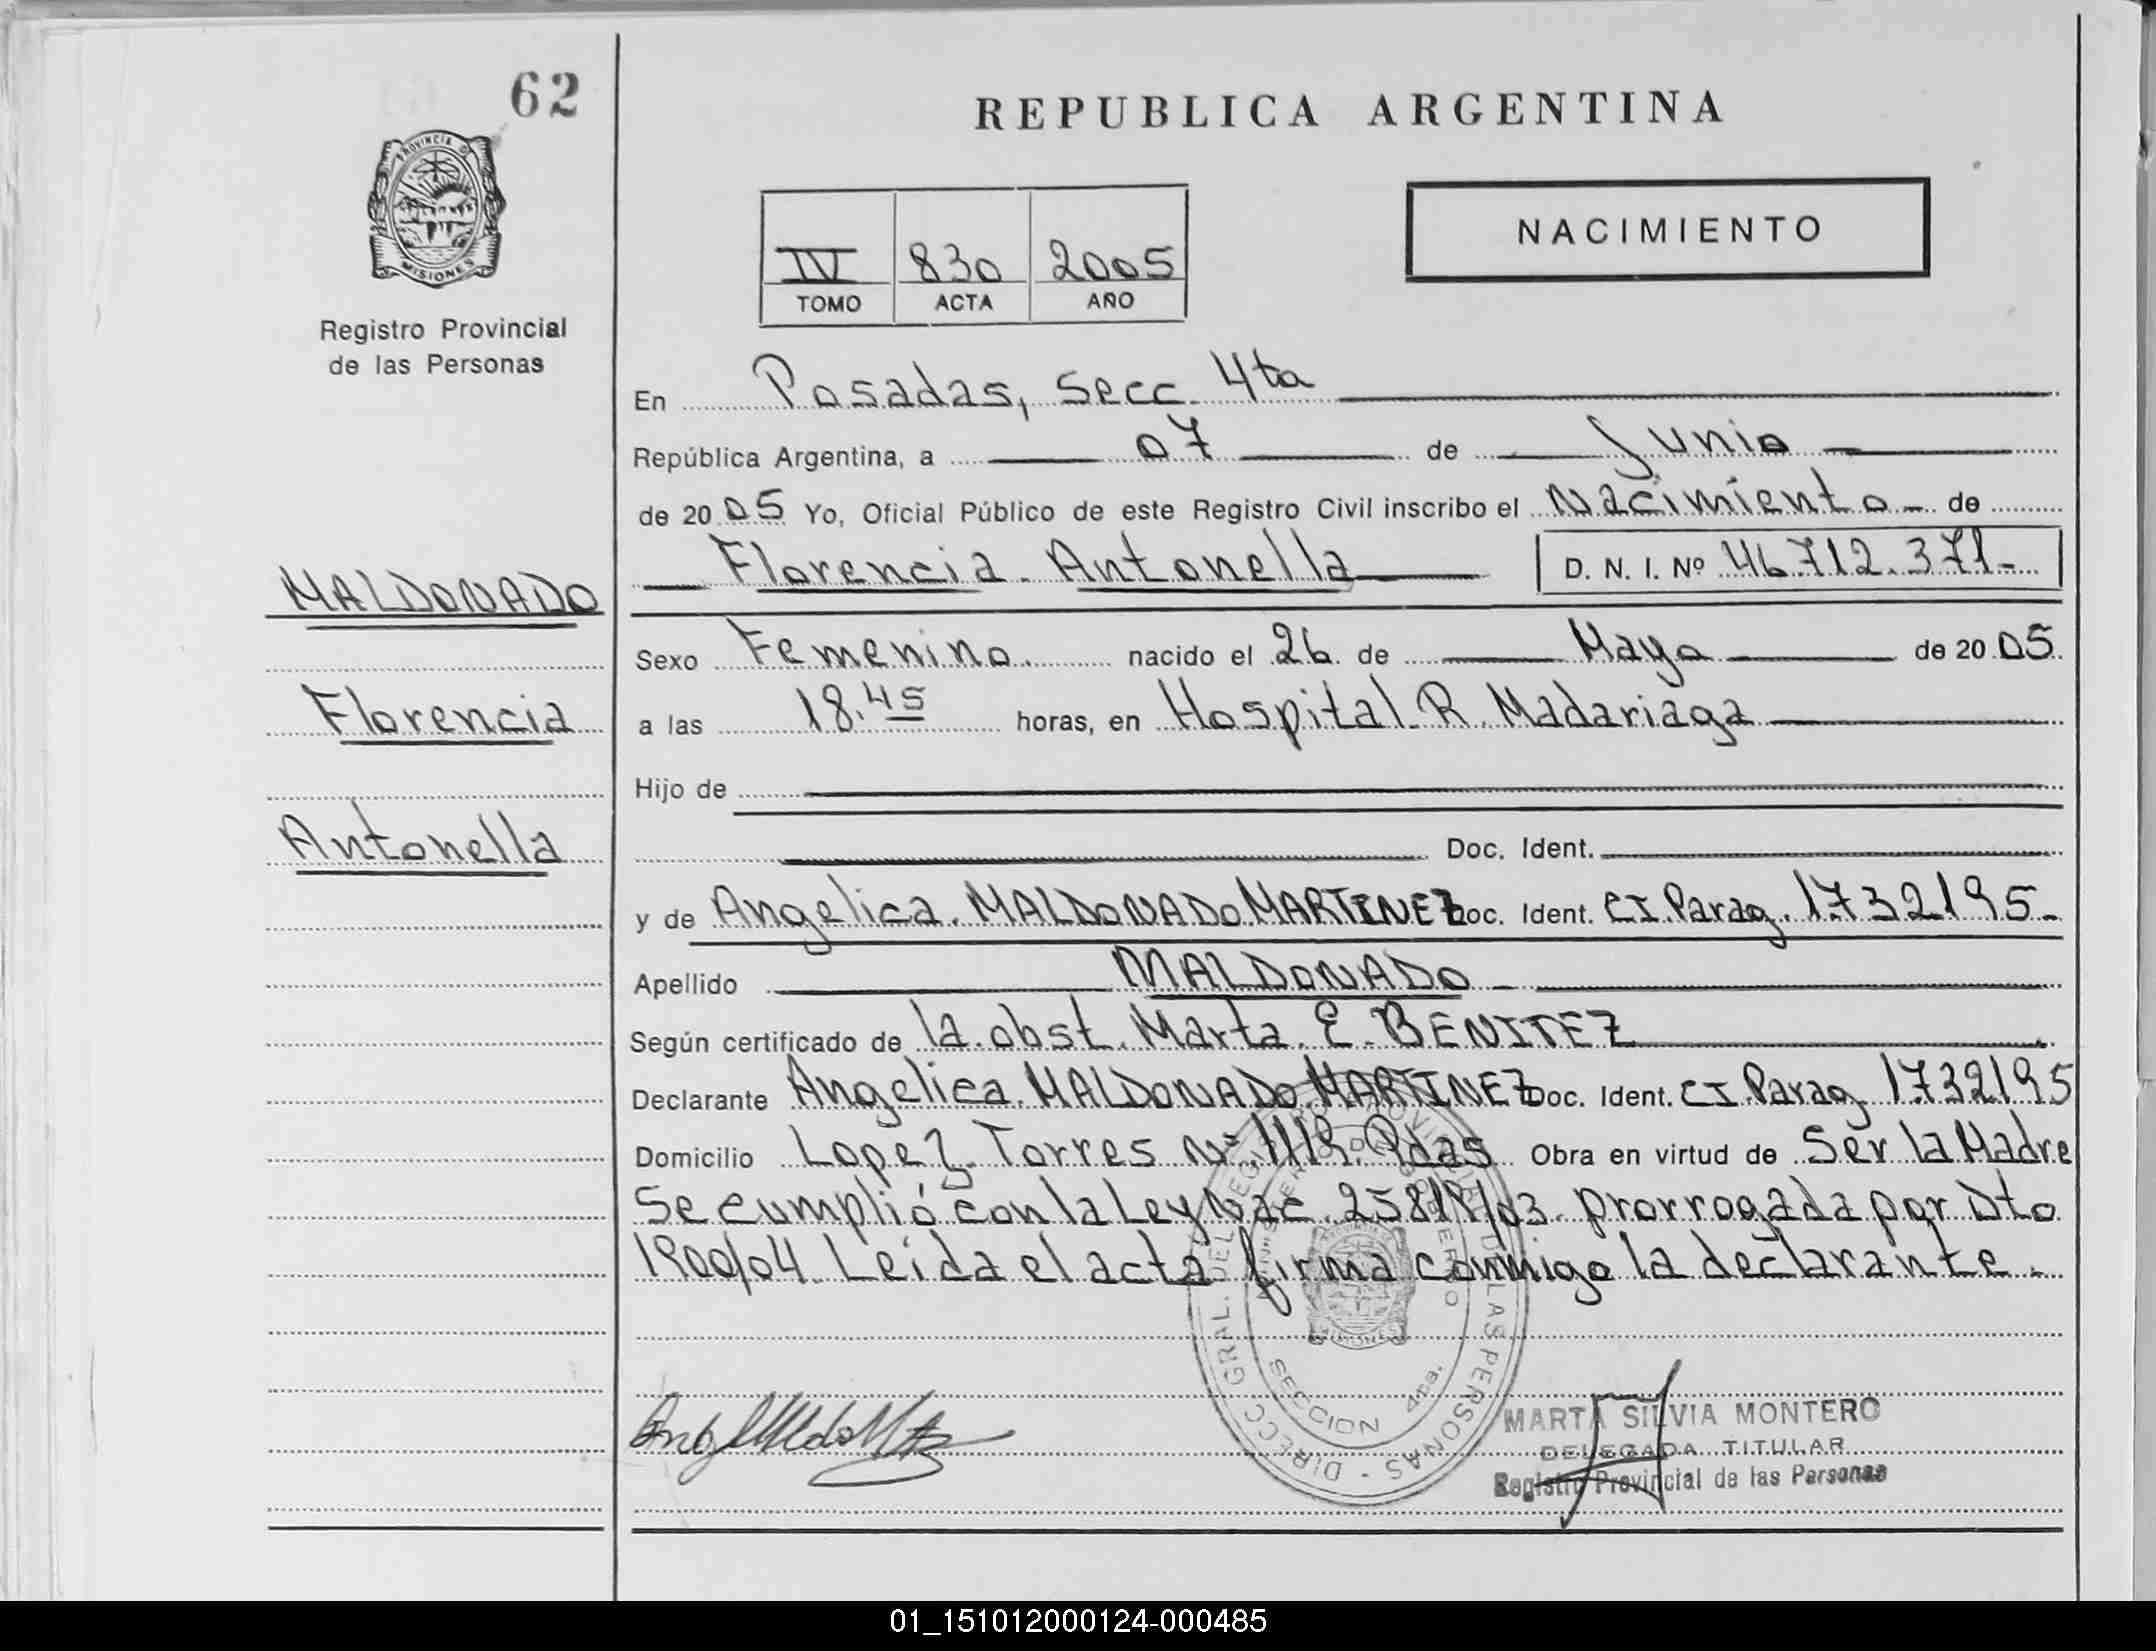 62
PROVINCIA D
MISIONES
Registro Provincial
de las Personas
MALDONADO
Florencia
Antonella
REPUBLICA ARGENTINA
NACIMIENTO
IV 830 2005
TOMO ACTA AÑO
En Posadas, Secc. 4ta
República Argentina, a 07 de Junio
de 2005 Yo, Oficial Público de este Registro Civil inscribo el Nacimiento de
Florencia Antonella D. N. I. Nº 46.712.371-
Sexo Femenino nacido el 26 de Mayo de 2005.
a las 18.45 horas, en Hospital R. Madariaga
Hijo de
Doc. Ident.
y de Angelica MALDONADO MARTINEZ Doc. Ident. CI Parag. 1732195-
Apellido MALDONADO
Según certificado de la obst. Marta E. BENITEZ
Declarante Angelica MALDONADO MARTINEZ Doc. Ident. CI Parag. 1732195
Domicilio Lopez Torres Nº Pdas Obra en virtud de Ser la Madre
Se cumplió con la Ley Nac. 25819/03 prorrogada por Dto
1900/04. Leída el acta firma conmigo la declarante.
DIRECC. GRAL. DEL REGISTRO PROVINCIAL DE LAS PERSONAS
SECCION 4ta.
MARTA SILVIA MONTERO
DELEGADA TITULAR
Registro Provincial de las Personas
01_151012000124-000485